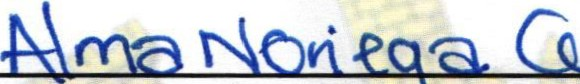 Alma Noriega G